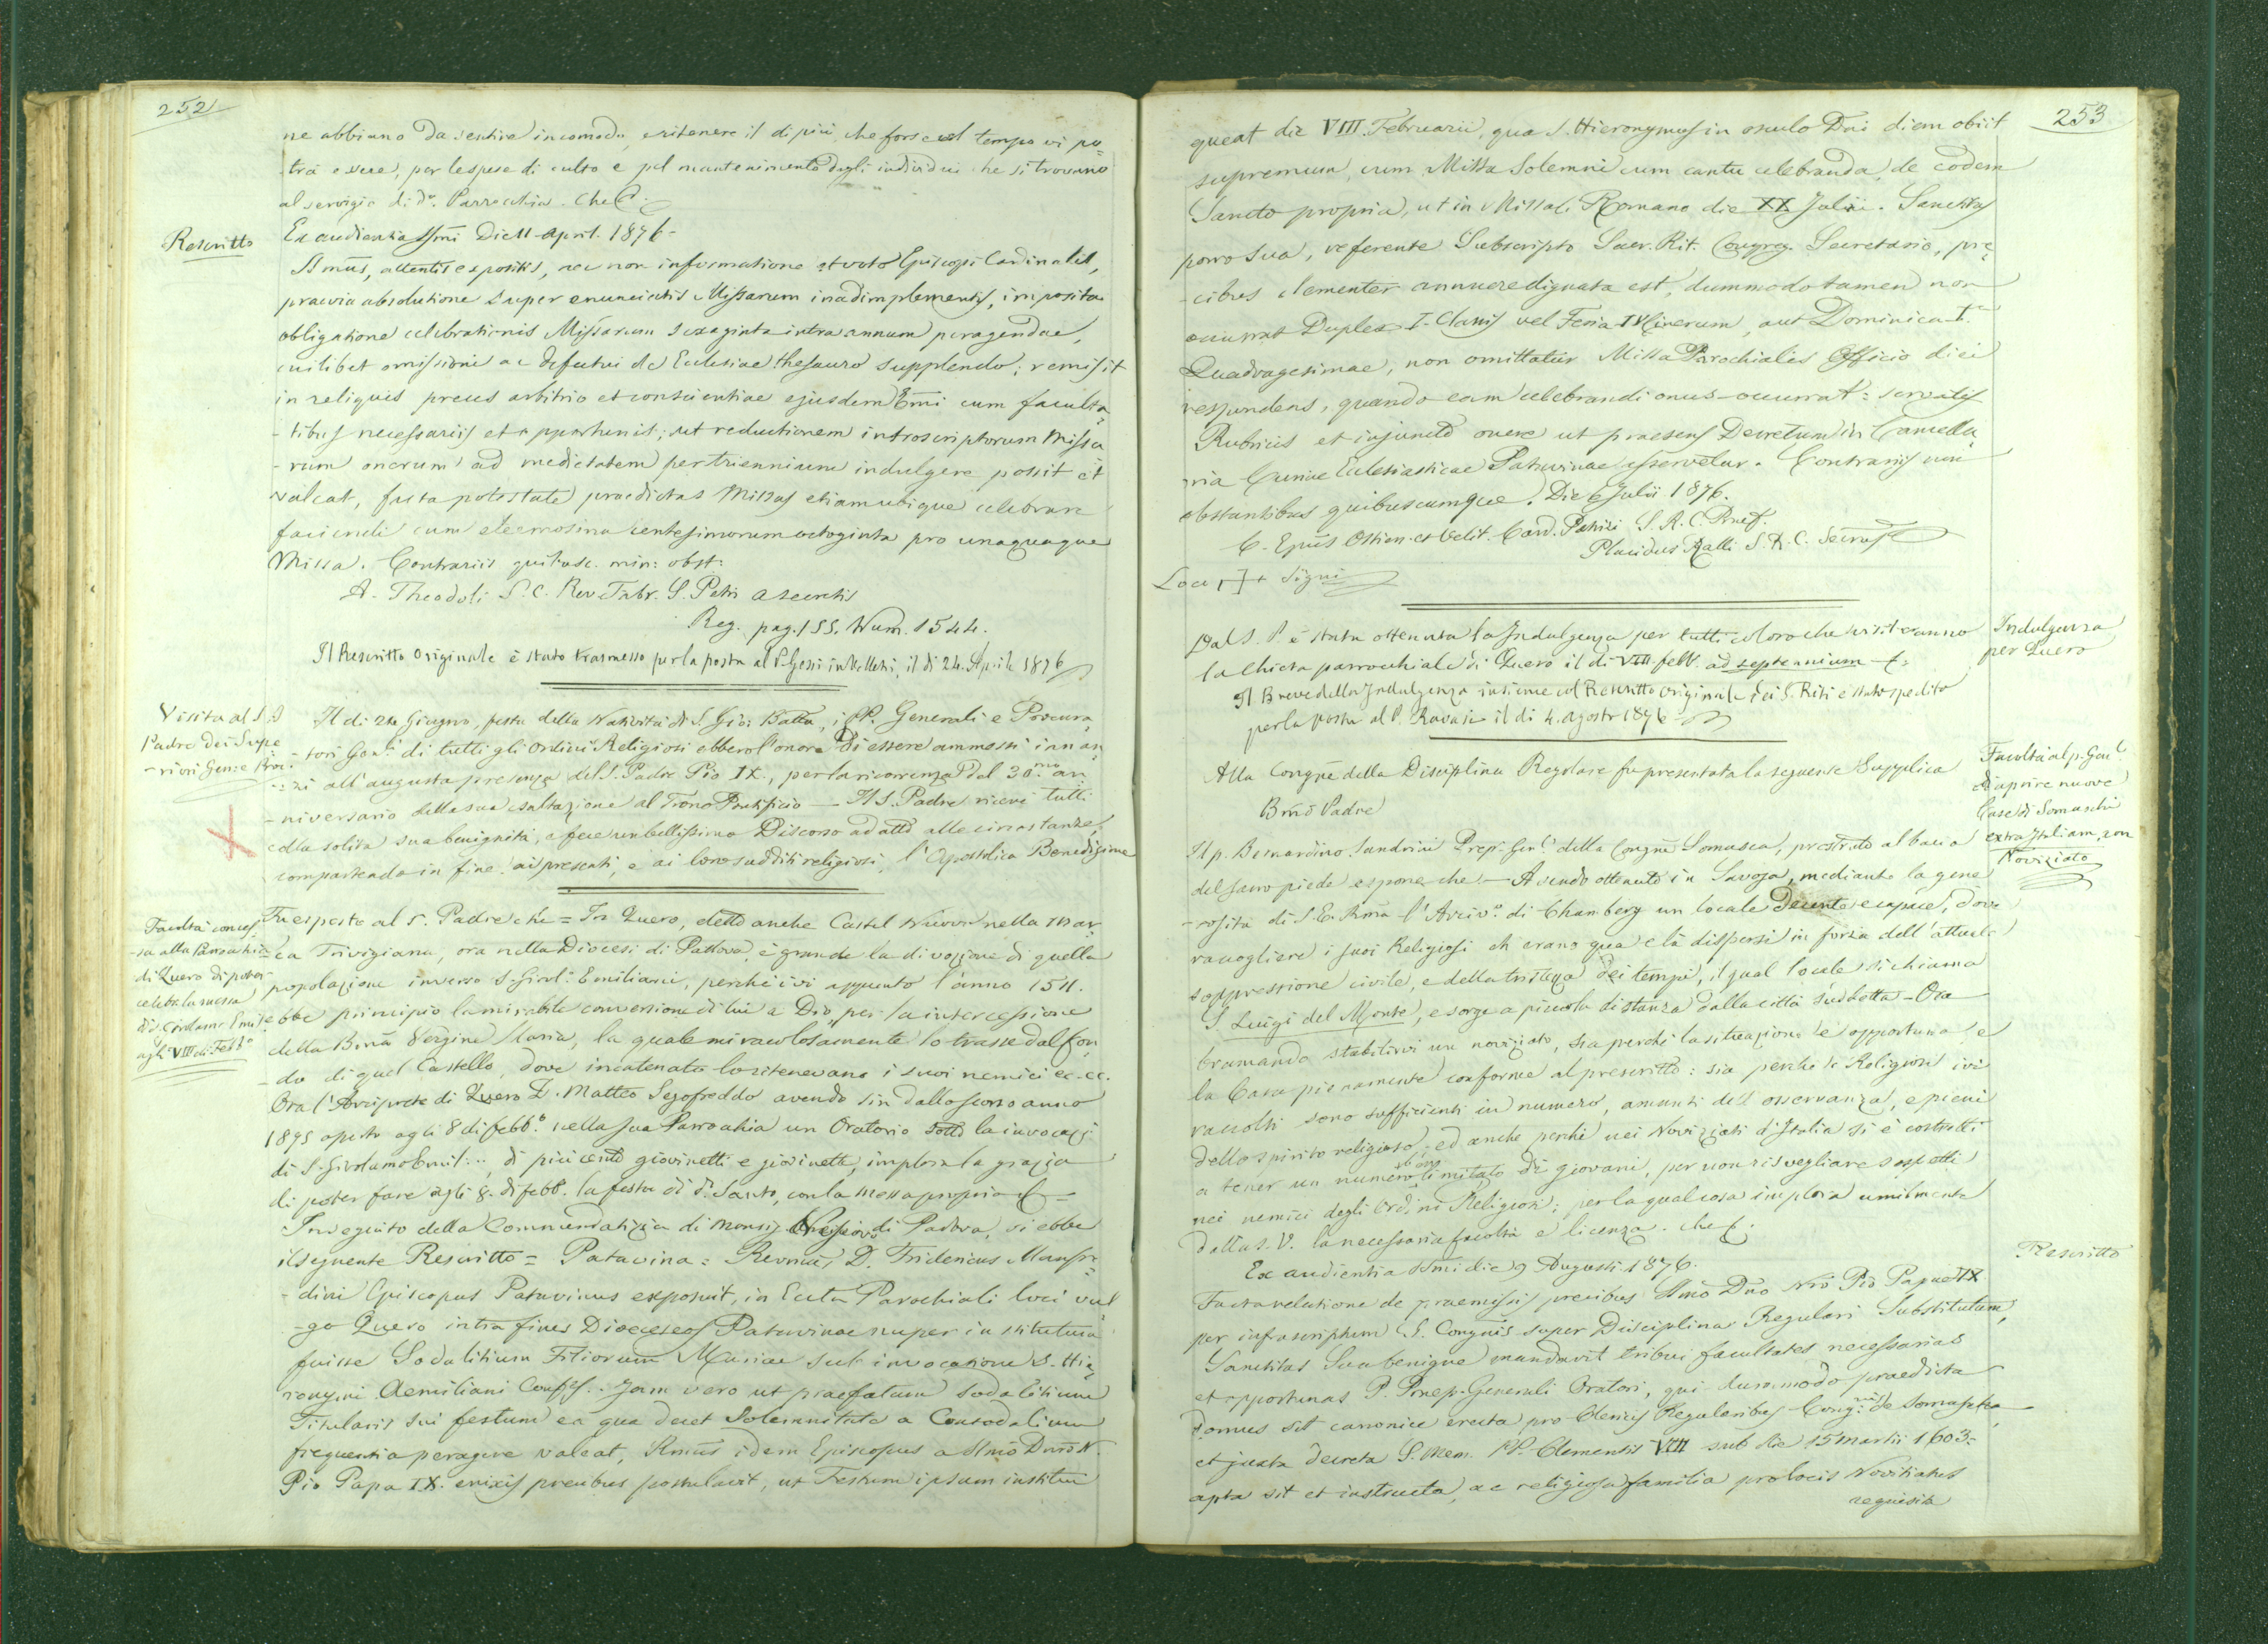 252
ne abbiano da sentire incomodo, e ritenere il di più che forse col tempo vi po=
trà essere, per le spese di culto e pel mantenimento degli individui che si trovano
al servigio di d.ª Parrocchia. Che
Rescritto
Ex audientia SSmi Die 11 April. 1876 -
SSmus, attentis expositis, nec non informatione et voto Episcopi Cardinalis,
praevia absolutione super enunciatis Missarum inadimplementis, imposita
obligatione celebrationis Missarum sexaginta intra annum peragendae,
cuilibet omissioni ac defectui de Ecclesiae thesauro supplendo; remisit
in reliquis preces arbitrio et conscientiae ejusdem Emi cum faculta=
- tibus necessariis et opportunis; ut reductionem introscriptorum Missa
- rum onerum ad medietatem per triennium indulgere possit et
valeat, facta potestate praedictas Missas etiam ubique celebrare
faciendi cum eleemosina centesimorum octoginta pro unaquaque
Missa. Contrariis quibusc. min: obst:
A. Theodoli S. C. Rev. Fabr. S. Petri a secretis
Reg. pag. 155. Num. 1544.
Il Rescritto originale è stato trasmesso per la posta al P. Gessi in Velletri, il di 24. Aprile 1876
Visita al S.
Padre dei Supe
- riori Gen: e Proc.
Il di 24 Giugno, festa della Natività di S. Gio: Batta, i PP. Generali e Procura
- tori Gen.li di tutti gli Ordini Religiosi ebbero l'onore di essere ammessi innan
- zi all'augusta presenza del S. Padre Pio IX., per la ricorrenza del 30.mo an
- niversario della sua esaltazione al Trono Pontificio — Il S. Padre ricevè tutti
colla solita sua benignità, e fece un bellissimo Discorso adatto alle circostanze,
compartendo in fine ai presenti, e ai loro sudditi religiosi, l'Apostolica Benedizione
Facoltà conces
- sa alla Parrocchia
di Quero di poter
celebr. la messa
di S. Girolamo Emil.
agli VIII di Febb.º
Fu esposto al S. Padre che = In Quero, detto anche Castel Nuovo nella Mar
- ca Trivigiana, ora nella Diocesi di Padova, è grande la divozione di quella
popolazione inverso S. Girol.º Emiliani, perchè ivi appunto l'anno 1511.
ebbe principio la mirabile conversione di lui a Dio, per la intercessione
della Bmã Vergine Maria, la quale miracolosamente lo trasse dal fon
- do di quel Castello, dove incatenato lo ritenevano i suoi nemici ec. ec.
Ora l'Arciprete di Quero D. Matteo Segofreddo avendo sin dallo scorso anno
1875 aperto agli 8 di febb.º nella sua Parrocchia un Oratorio sotto la invocaz:
di S. Girolamo Emil:.., di più cento giovinetti e giovinette, implora la grazia
di poter fare agli 8. di febb. la festa di d.º Santo, con la messa propria
In seguito della Commendatizia di Monsig. Vescovo di Padova, si ebbe
il seguente Rescritto = Patavina = Revmus D. Fridericus Manfre
- dini Episcopus Patavinus exposuit, in Eccla Parochiali loci vul
- go Quero intra fines Dioeceseos Patavinae nuper institutum
fuisse Sodalitium Filiorum Mariae sub invocatione S. Hie=
ronymi Aemiliani Confes. Jam vero ut praefatum sodalitium
Titularis sui festum ea qua decet solemnitate a Consodalium
frequentia peragere valeat, Rmus idem Episcopus a SSmo Dno N.
Pio Papa IX. enixis precibus postulavit, ut Festum ipsum institui
253
queat die VIII Februarii, qua S. Hieronymus in osculo Dni diem obiit
supremum, cum Missa Solemni cum cantu celebranda, de eodem
Sancto propria, ut in Missali Romano die XX Julii. Sanctitas
porro sua, referente Subscripto Sacr. Rit. Congreg. Secretario, pre=
- cibus clementer annuere dignata est, dummodo tamen non
occurrat Duplex I. Classis vel Feria IV Cinerum, aut Dominica I.ª
Quadragesimae, non omittatur Missa Parochialis Officio diei
respondens, quando eam celebrandi onus occurrat: servatis
Rubricis et injuncto onere ut praesens Decretum in Cancella=
ria Curiae Ecclesiasticae Patavinae asservetur. Contrariis non
obstantibus quibuscumque. Die 6 Julii 1876.
C. Epus Ostien. et Velit. Card. Patrizi S. R. C. Praef.
Placidus Ralli S. R. C. Secrus
Loco + Signi
Indulgenza
per Quero
Dal S. P. è stata ottenuta la Indulgenza per tutti coloro che visiteranno
la Chiesa parrocchiale di Quero il di VIII. febb. ad septennium
Il Breve della Indulgenza insieme col Rescritto originale dei S. Riti è stato spedito
per la posta al P. Ravasi il di 4. Agosto 1876
Facoltà al p. Gen.l
di aprire nuove
Case di Somaschi
extra Italiam, con
Noviziato
Alla Congne della Disciplina Regolare fu presentata la seguente Supplica
Bmo Padre
Il p. Bernardino Sandrini Prep. Gen.l della Congne Somasca, prostrato al bacio
del sacro piede espone che — Avendo ottenuto in Savoja, mediante la gene
- rosità di S. E. Rma l'Arciv.º di Chambery un locale decente e capace, dove
raccogliere i suoi Religiosi ch'erano qua e là dispersi in forza dell'attuale
soppressione civile, e della tristezza dei tempi, il qual locale si chiama
S. Luigi del Monte, e sorge a piccola distanza dalla città suddetta - Ora
bramando stabilirvi un noviziato, sia perchè la situazione è opportuna, e
la Casa pienamente conforme al prescritto: sia perchè i Religiosi ivi
raccolti sono sufficienti in numero, amanti dell'osservanza, e pieni
dello spirito religioso; ed anche perchè nei Noviziati d'Italia si è costretti
a tener un numero limitato di giovani, per non risvegliare sospetti
nei nemici degli Ordini Religiosi; per la qual cosa implora umilmente
dalla S. V. la necessaria facoltà e licenza. Che
Rescritto
Ex audientia SSmi die 9 Augusti 1876.
Facta relatione de praemissis precibus SSmo Dno Nro Pio Papae IX
per infrascriptum S. Congnis super Disciplina Regulari Substitutum,
Sanctitas Sua benigne mandavit tribui facultates necessarias
et opportunas P. Praep. Generali Oratori, qui dummodo praedicta
domus sit canonice erecta pro Clericis Regularibus Cong.nis de Somascha
et juxta decreta S. Mem. PP. Clementis VIII sub die 15 Martii 1603.
apta sit et instructa, ac religiosa familia pro locis Novitiatus
requisita